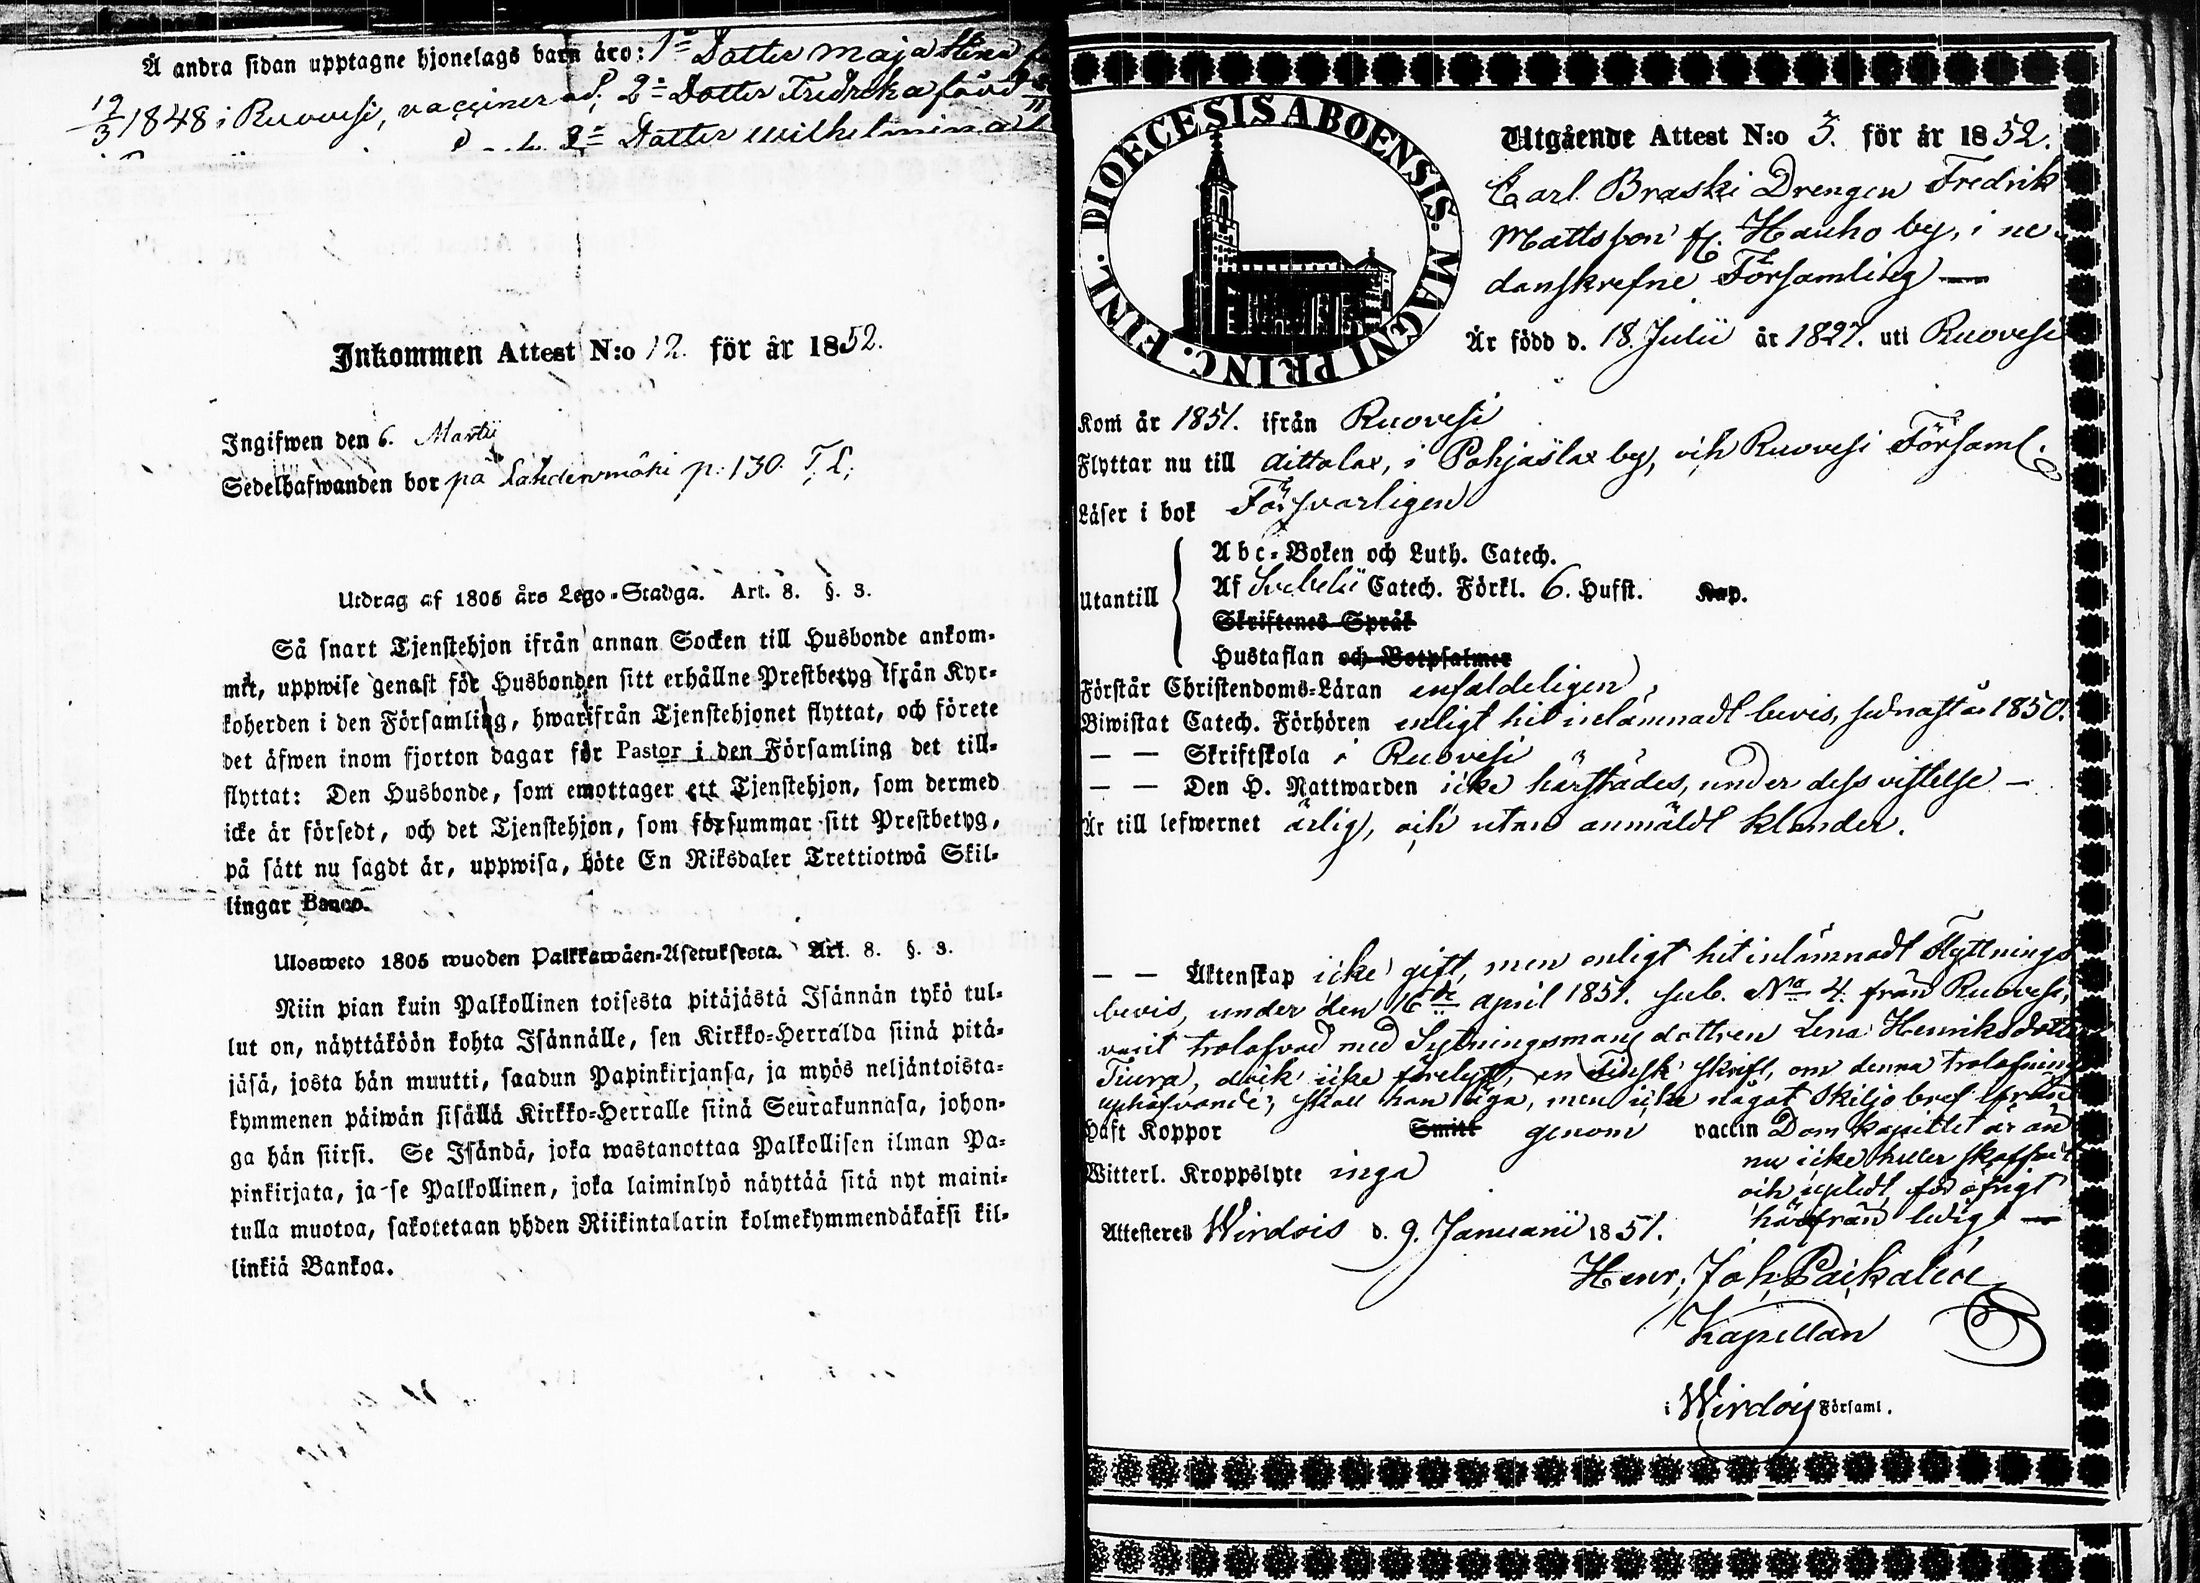 Å andra sidan upptagne hjonelags barn äro: 1= Dotter Maja Stina
12/3 1848 i Ruovesi, vaccinerad, 2= Dotter Fredrika född
3= Dotter Wilhelmina
Inkommen Attest N:o 12. för år 1852.
Ingifwen den 6. Martii
Sedelhafwanden bor på Lahdenmäki p: 130. T. L.
Utdrag af 1805 års Lego-Stadga. Art. 8. §. 3.
Så snart Tjenstehjon ifrån annan Socken till Husbonde ankom-
mit, uppwise genast för Husbonden sitt erhållne Prestbetyg ifrån Kyr-
koherden i den Församling, hwarifrån Tjenstehjonet flyttat, och förete
det äfwen inom fjorton dagar för Pastor i den Församling det till-
flyttat: Den Husbonde, som emottager ett Tjenstehjon, som dermed
icke är försedt, och det Tjenstehjon, som försummar sitt Prestbetyg,
på sätt nu sagdt är, uppwisa, böte En Riksdaler Trettiotwå Skil-
lingar Banco.
Ulosweto 1805 wuoden Palkkawäen-Asetuksesta. Art. 8. §. 3.
Niin pian kuin Palkollinen toisesta pitäjästä Isännän tykö tul-
lut on, näyttäköön kohta Isännälle, sen Kirkko-Herralda siinä pitä-
jäsä, josta hän muutti, saadun Papinkirjansa, ja myös neljäntoista-
kymmenen päiwän sisällä Kirkko-Herralle siinä Seurakunnasa, johon-
ga hän siirsi. Se Isändä, joka wastanottaa Palkollisen ilman Pa-
pinkirjata, ja se Palkollinen, joka laiminlyö näyttää sitä nyt maini-
tulla muotoa, sakotetaan yhden Riikintalarin kolmekymmendäkaksi kil-
linkiä Bankoa.
DIOECESIS ABOENSIS. MAGNI PRINC. FINL.
Utgående Attest N:o 3. för år 1852.
Carl Braski Drengen Fredrik
Mattsson fr. Hauho by, i ne-
danskrefne Församling —
Är född d. 18. Julii år 1827. uti Ruovesi
Kom år 1851. ifrån Ruovesi
Flyttar nu till Aittolax, i Pohjaslax by, och Ruovesi Församl.
Läser i bok Försvarligen
Utantill
Abc-Boken och Luth. Catech.
Af Svebelii Catech. Förkl. 6. Hufst. Kap.
Skriftenes Språk
Hustaflan och Botpsalmer
Förstår Christendoms-Läran enfaldeligen,
Biwistat Catech. Förhören enligt hit inlämnadt bevis, sednast år 1850.
— — Skriftskola i Ruovesi
— — Den H. Nattwarden icke härstädes, under dess vistelse —
Är till lefwernet ärlig, och utan anmäldt klander.
— — Äktenskap icke gift, men enligt hit inlämnadt Flyttnings
bevis, under den 16de April 1851. sub. No 4. från Ruovesi,
varit trolofvad med Sytningsmans dottren Lena Henriksdotter
Tiura, dock icke förelyst, en Finsk skrift, om denna trolofnings
uphäfvande, skall han äga, men icke något Skiljobref ifrån
Haft Koppor Smitt genom vaccin Domkapitlet är än
nu icke heller skaffadt
Witterl. Kroppslyte inga
och upledt, för öfrigt
härifrån ledig. —
Attesteres Wirdois d. 9. Januarii 1851.
Henr. Joh. Paikalén
Kapellan
i Wirdois Församl.